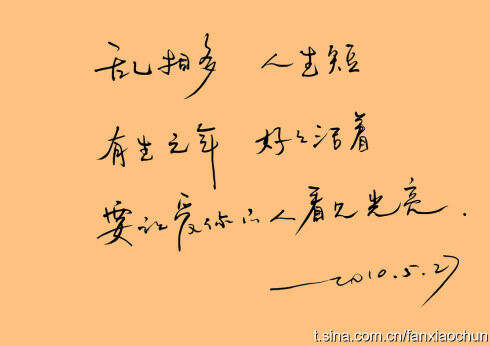 乱相多 人生短
有生之年 好好活着
要让爱你的人看见光亮.
——2010.5.27
t.sina.com.cn/fanxiaochun